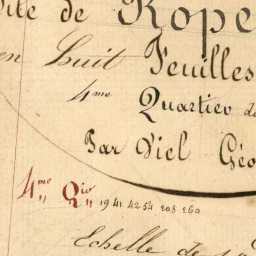 ite de Rope
en Huit Feuilles
4me Quartier de
Par Viel Géo
4me Qier 19 41 42 54 203 260
Echelle de